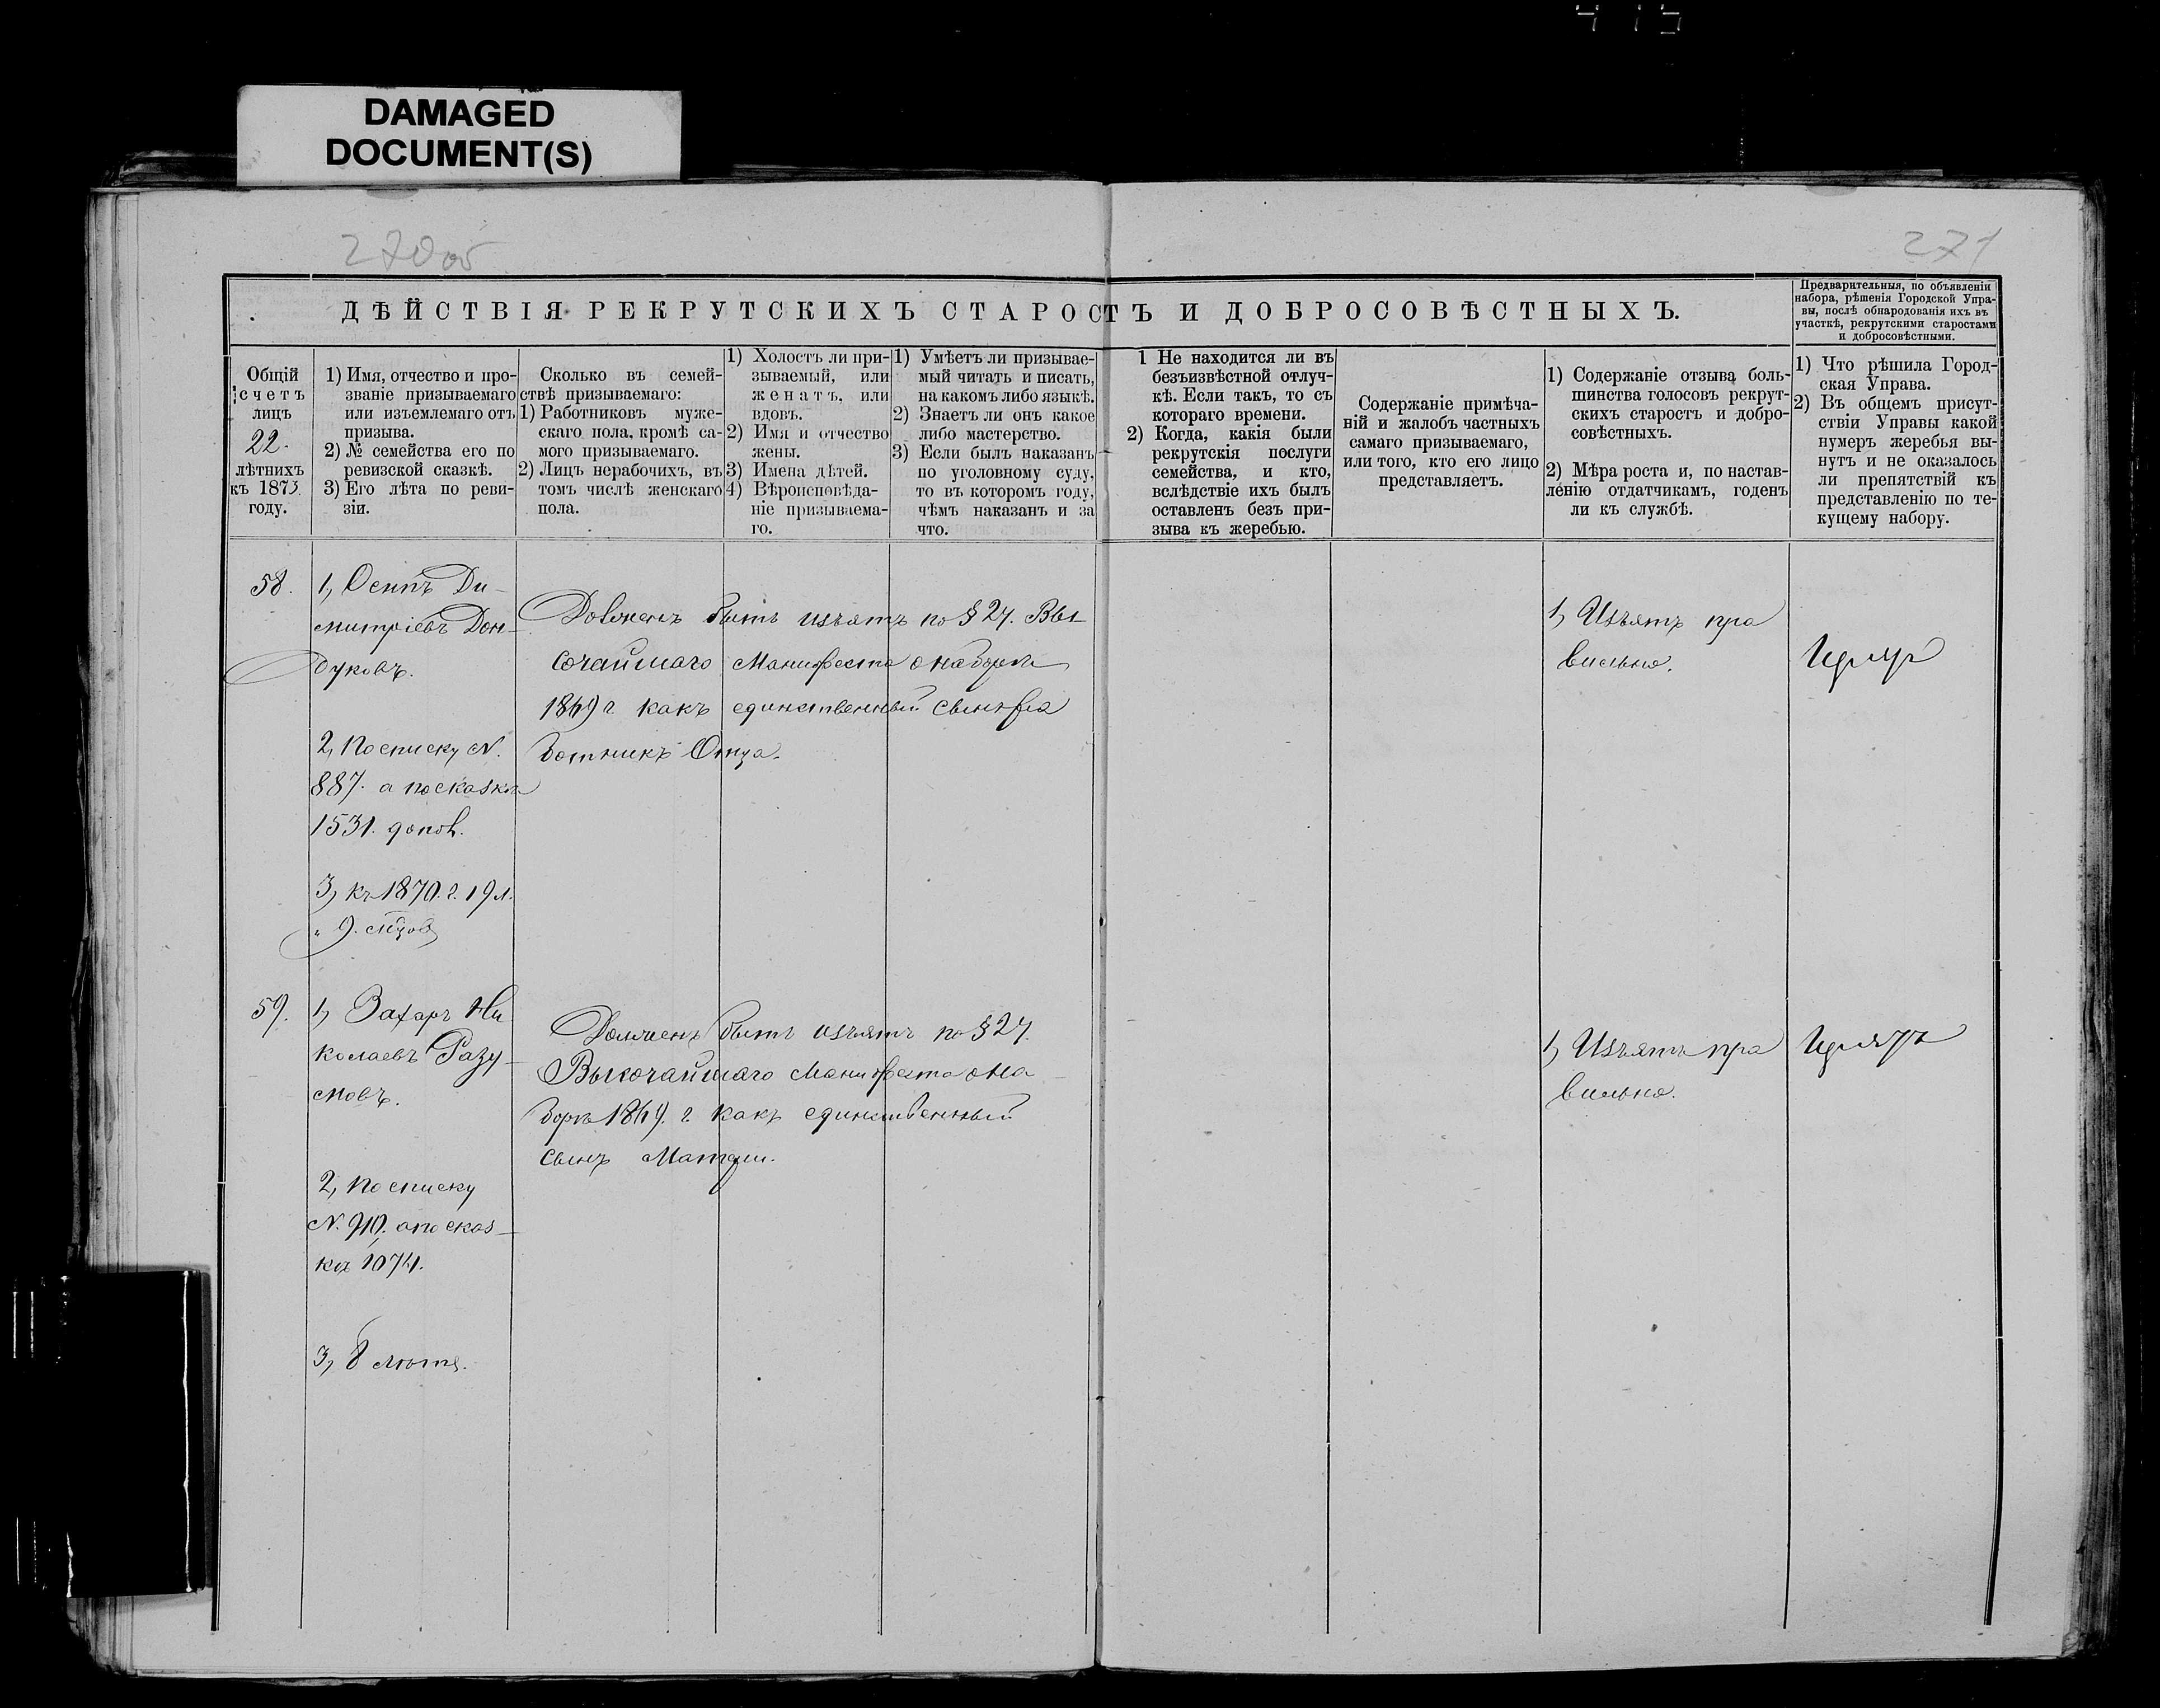 415
DAMAGED
DOCUMENT(S)
270об
271
ДѢЙСТВІЯ РЕКРУТСКИХЪ СТАРОСТЪ И ДОБРОСОВѢСТНЫХЪ.
Предварительныя, по объявленіи
набора, рѣшенія Городской Упра-
вы, послѣ обнародованія ихъ въ
участкѣ, рекрутскими старостами
и добросовѣстными.
Общій
счетъ
лицъ
22.
лѣтнихъ
къ 1873.
году.
1) Имя, отчество и про-
званіе призываемаго
или изъемлемаго отъ
призыва.
2) № семейства его по
ревизской сказкѣ.
3) Его лѣта по реви-
зіи.
Сколько въ семей-
ствѣ призываемаго:
1) Работниковъ муже-
скаго пола, кромѣ са-
мого призываемаго.
2) Лицъ нерабочихъ, въ
томъ числѣ женскаго
пола.
1) Холостъ ли при-
зываемый, или
женатъ, или
вдовъ.
2) Имя и отчество
жены.
3) Имена дѣтей.
4) Вѣроисповѣда-
ніе призываема-
го.
1) Умѣетъ ли призывае-
мый читать и писать,
на какомъ либо языкѣ.
2) Знаетъ ли онъ какое
либо мастерство.
3) Если былъ наказанъ
по уголовному суду,
то въ которомъ году,
чѣмъ наказанъ и за
что.
1 Не находится ли въ
безъизвѣстной отлуч-
кѣ. Если такъ, то съ
котораго времени.
2) Когда, какія были
рекрутскія послуги
семейства, и кто,
вслѣдствіе ихъ былъ
оставленъ безъ при-
зыва къ жеребью.
Содержаніе примѣча-
ній и жалобъ частныхъ
самаго призываемаго,
или того, кто его лицо
представляетъ.
1) Содержаніе отзыва боль-
шинства голосовъ рекрут-
скихъ старостъ и добро-
совѣстныхъ.
2) Мѣра роста и, по настав-
ленію отдатчикамъ, годенъ
ли къ службѣ.
1) Что рѣшила Город-
ская Управа.
2) Въ общемъ присут-
ствіи Управы какой
нумеръ жеребья вы-
нутъ и не оказалось
ли препятствій къ
представленію по те-
кущему набору.
58.
1, Осипъ Ди-
митріевъ Дон-
дуковъ.
2, По списку N.
887. а по сказкѣ
1531. допол.
3, къ 1870. г. 19 л.
" 9. мцов
Долженъ быть изъятъ по § 24. Вы
сочайшаго Манифеста о наборѣ
1869 г какъ единственный сынъ ра
ботникъ Отца.
1, Изъятъ пра
вильно.
59.
1, Захаръ Ни
колаевъ Разу-
мовъ.
2, По списку
N. 910. а по сказ-
кѣ 1074.
3, 8 лѣтъ.
Долженъ быть изъятъ по § 24.
Высочайшаго Манифеста о на-
борѣ 1869. г. какъ единственный
сынъ Матери.
1, Изъятъ пра
вильно.